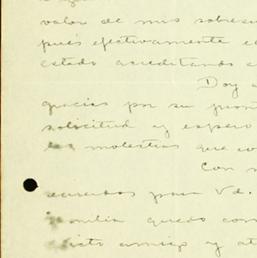 valor de mis
pues efectivamente
estado acreditando
Doy
gracias por su
solicitud y espero
molestias que
Con
acuerdos para Vd.
familia quedo
amigo y